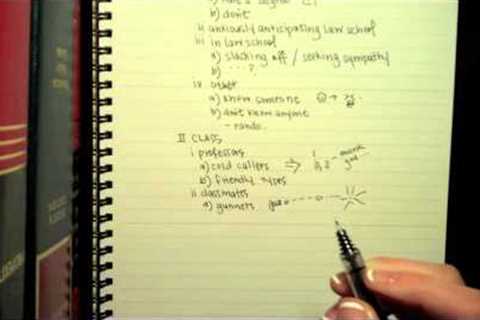 b) don't
ii anxiously anticipating law school
iii in law school
a) slacking off / seeking sympathy
b) .... ?
iv other
a) know someone
b) don't know anyone
- rando.
II CLASS
i professors
a) cold callers
b) friendly types
ii classmates
a) gunners